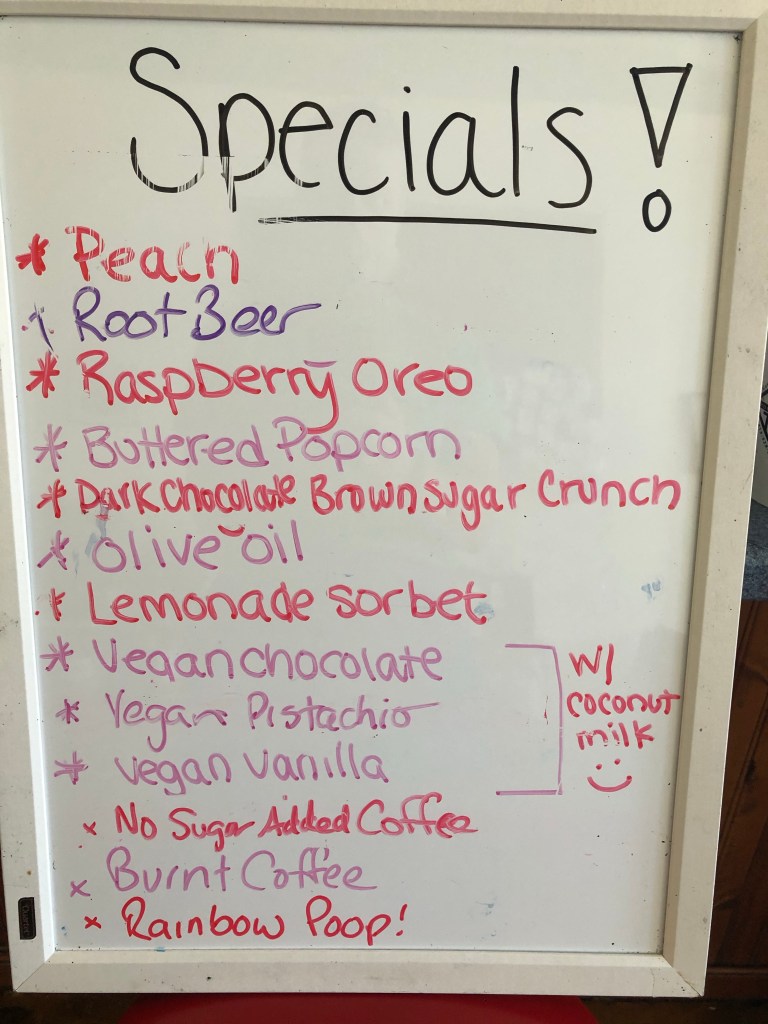 Specials!
* Peach
* Root Beer
* Raspberry Oreo
* Buttered Popcorn
* Dark Chocolate Brown Sugar Crunch
* Olive oil
* Lemonade sorbet
* Vegan chocolate
* Vegan Pistachio
* Vegan Vanilla
w/
coconut
milk
x No Sugar Added Coffee
x Burnt Coffee
x Rainbow Poop!